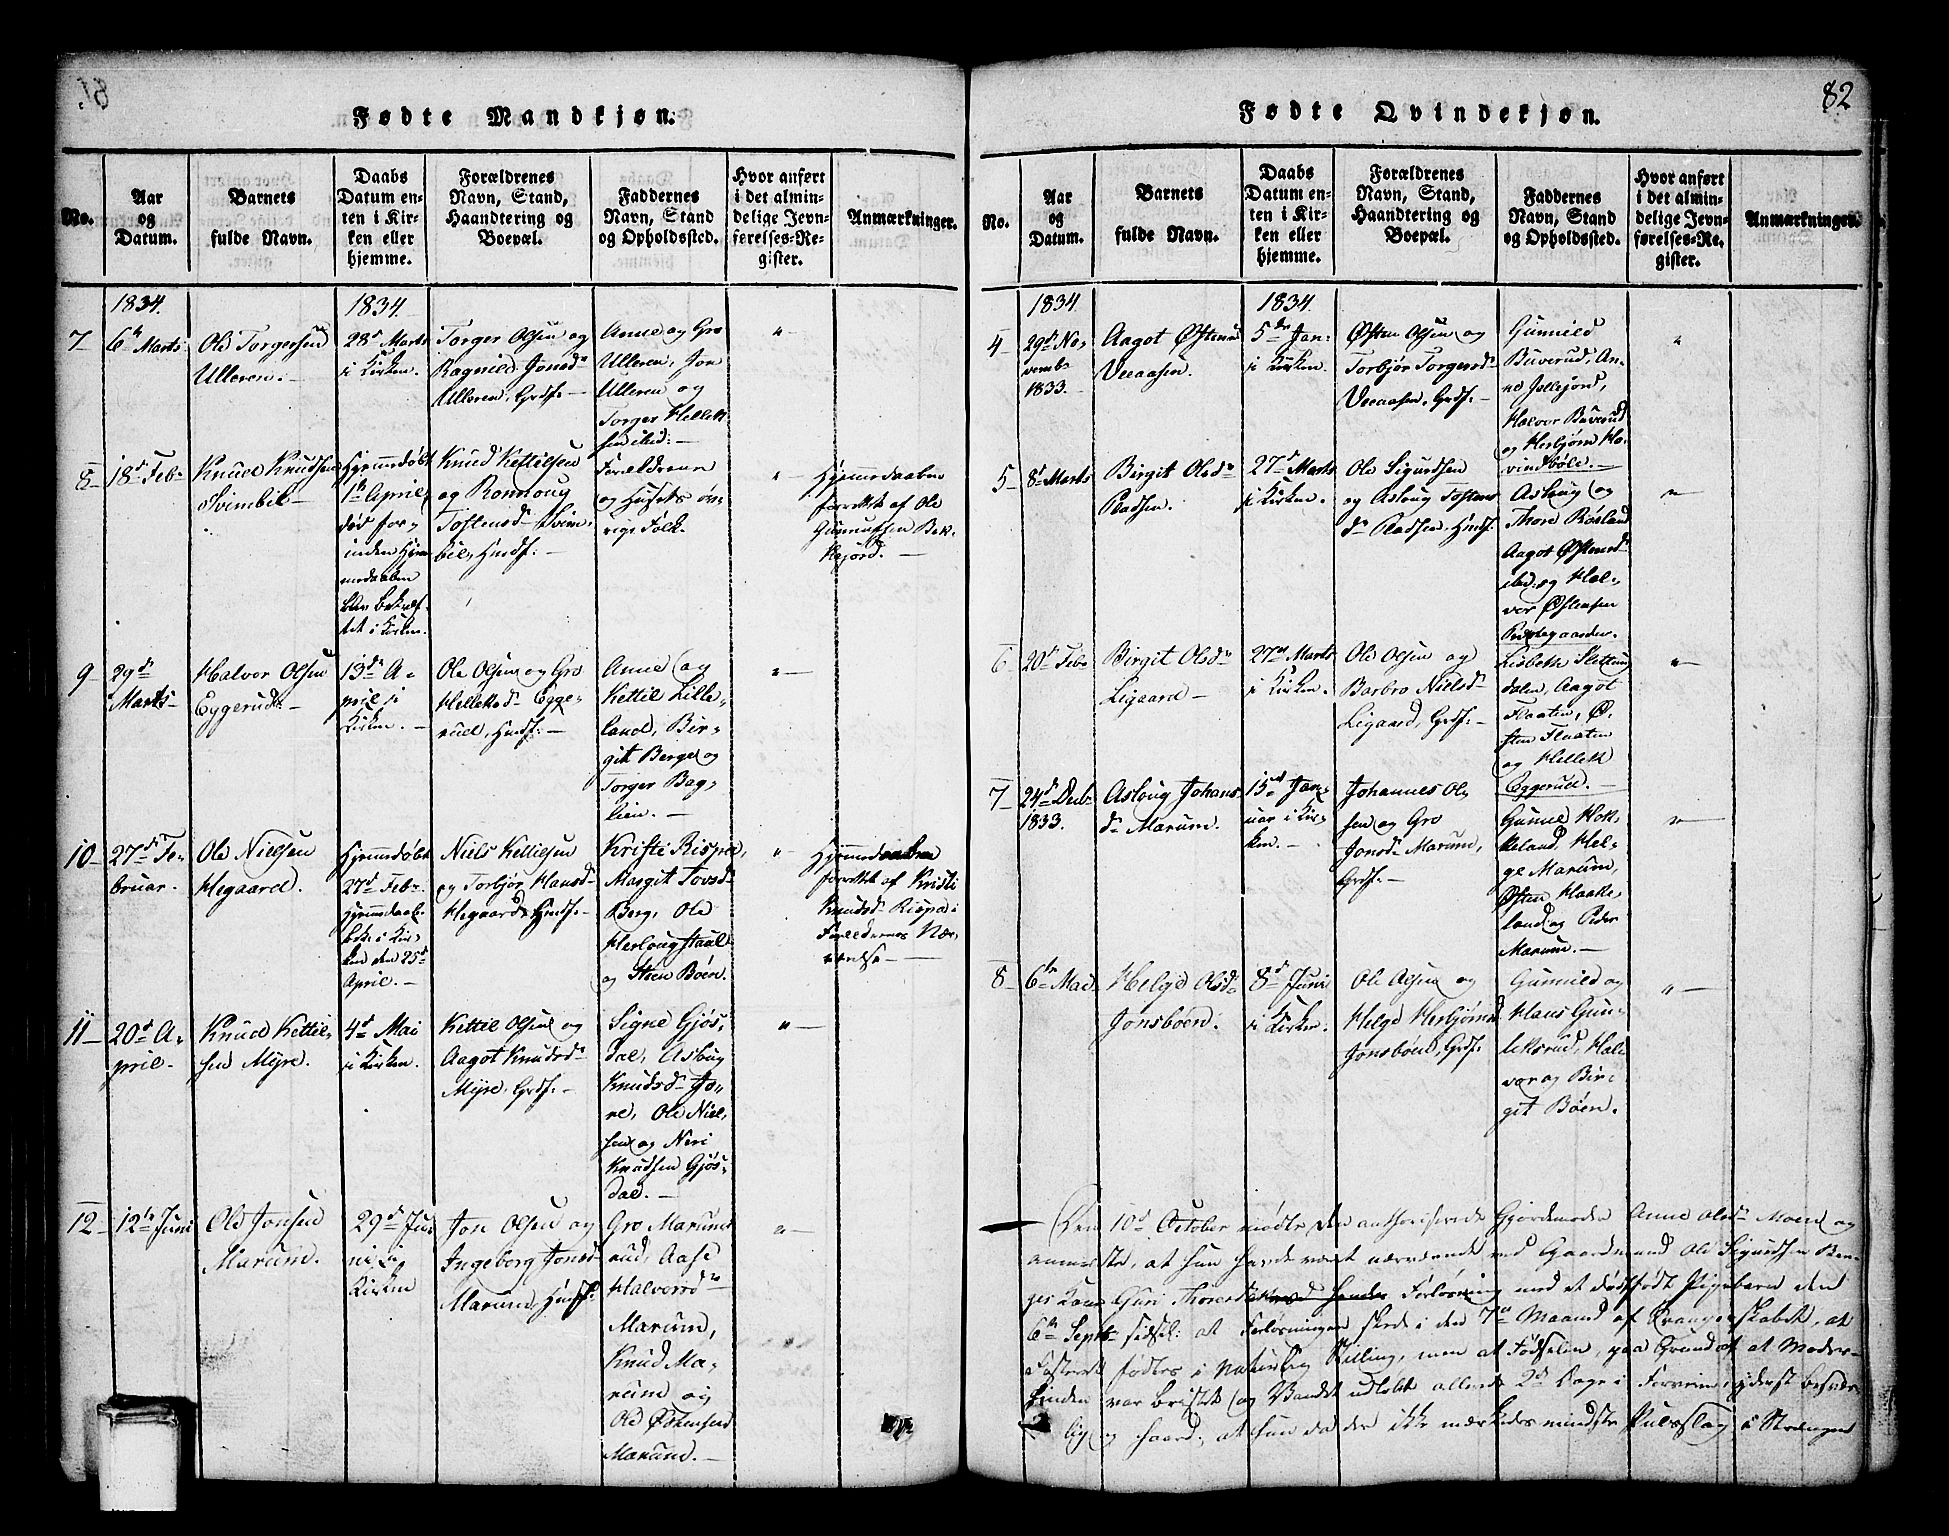 81.
Fødte Mandkjøn.
No.
Aar
og
Datum.
Barnets
fulde Navn.
Daabs
Datum en-
ten i Kir-
ken eller
hjemme.
Forældrenes
Navn, Stand,
Haandtering og
Boepæl.
Faddernes
Navn, Stand
og Opholdssted.
Hvor anført
i det almin-
delige Jevn-
førelses-Re-
gister.
Anmærkninger.
1834.
1834.
7
6te Marts
Ole Torgersen
Ulleren.
28d Marts
i Kirken.
Torger Olsen og
Ragnild Jonsdr
Ulleren, Grdf.
Anne og Gro
Ulleren, Jon
Ulleren og
Torger Hellek-
sen ibid.
"
8
18d Feb.
Knud Knudsen
Svimbil
Hjemmedøbt
1te April,
død for-
inden Hjem-
medaaben
blev bekræf-
tet i Kirken.
Knud Kettilsen
og Ronnoug
Tostensdr Svim-
bil, Hmdf.
Forældrene
og Husets øv-
rige Folk.
"
Hjemmedaaben
forrettet af Ole
Gunnulfsen Bek-
kejord.
9
29de
Marts
Halvor Olsen
Eggerud.
13de A-
pril i
Kirken.
Ole Olsen og Gro
Helleksdr Egge-
rud, Hmdf.
Anne og
Kettil Lille-
land, Bir-
git Berge og
Torger Bag-
lien.
"
10
27de Fe-
bruar.
Ole Nielsen
Hegaard.
Hjemmedøbt
27d Feb.
Hjemmedaab
bek. i Kir-
ken den 25d
April.
Niels Kettilsen
og Torbjør Hansdr
Hegaard, Hmdf.
Kristi Rispa,
Margit Tovsdr
Berg, Ole
Herlougstaul
og Steen Bøen.
"
Hjemmedaaben
forrettet af Kristi
Knudsdr Rispa i
Forældrenes Nær-
værelse
11
20d A-
pril.
Knud Kettil-
sen Myre.
4d Mai
i Kirken.
Kettil Olsen og
Aagot Knudsdr
Myre, Grdf.
Signe Gjøs-
dal, Asloug
Knudsdr Jo-
re, Ole Niel-
sen og Neri
Knudsen Gjøs-
dal.
"
12
12te Juni
Ole Jonsen
Marum.
29d Ju-
ni i
Kirken
Jon Olsen og
Ingeborg Jonsdr
Marum, Hmdf.
Gro Marum-
rud, Aase
Halvorsdr
Marum,
Knud Ma-
rum og
Ole Østensen
Marum.
"
82
Fødte Qvindekjøn.
No.
Aar
og
Datum.
Barnets
fulde Navn.
Daabs
Datum en-
ten i Kir-
ken eller
hjemme.
Forældrenes
Navn, Stand,
Haandtering og
Boepæl.
Faddernes
Navn, Stand
og Opholdssted.
Hvor anført
i det almin-
delige Jevn-
førelses-Re-
gister.
Anmærkninger.
1834
1834
4
29d No-
vemb.
1833.
Aagot Østensdr
Veeaasen.
5de Jan.
i Kirken.
Østen Olsen og
Torbjør Torgersdr
Veeaasen, Grdf.
Gunnild
Buverud, An-
ne Jellejord,
Halvor Buverud
og Herbjørn Ha-
vindbøle.
"
5
8d Marts
Birgit Olsdr
Pladsen.
27d Marts
i Kirken.
Ole Sigurdsen
og Asloug Tostens-
dr Pladsen, Hmdf.
Asloug og
Thore Røsland
Aagot Østensdr
ibid. og Hal-
vor Østensen
Prestegaarden.
"
6
20d Feb.
Birgit Olsdr
Ligaard
27de Marts
i Kirken.
Ole Olsen og
Barbro Nielsdr
Ligaard, Grdf.
Lisbeth Slettem-
dalen, Aagot
Flaaten, Ø-
sten Flaaten
og Hellek
Eggerud.
"
7
24d Decb.
1833.
Asloug Johans-
dr Marum.
15d Jan-
uar i Kir-
ken.
Johannes Ol-
sen og Gro
Jonsdr Marum,
Grdf.
Gunne Hok-
keland, Hel-
ge Marum,
Østen Haake-
land og Peder
Marum.
"
8
6te Mai
Helge Olsdr
Jonsbøen.
8d Juni
i Kirken.
Ole Olsen og
Helge Herbjørnsdr
Jonsbøen, Grdf.
Gunnild og
Hans Gun-
leksrud, Hal-
vor og Bir-
git Bøen.
"
Den 10d October mødte den authoriserede Gjordemoder Anne Olsdr Moen og
anmeldte, at hun havde været nærværende ved Gaardmand Ole Sigurdsen Ber-
ges Kone Guri Thoresdr Forløsning med et dødfødt Pigebarn den
6te Septb. sidstl: at Forløsningen skede i den 7de Maaned af Svangerskabet, at
Fosteret fødtes i naturlig Stilling, men at Fødselen, paa Grund af at Moder-
hinden var bristet og Vandet udløbet allerede 2d Dage i Forveien, yderst besvær-
lig og haard, at hun da der ikke mærkedes mindste Pulsslag i Strengen